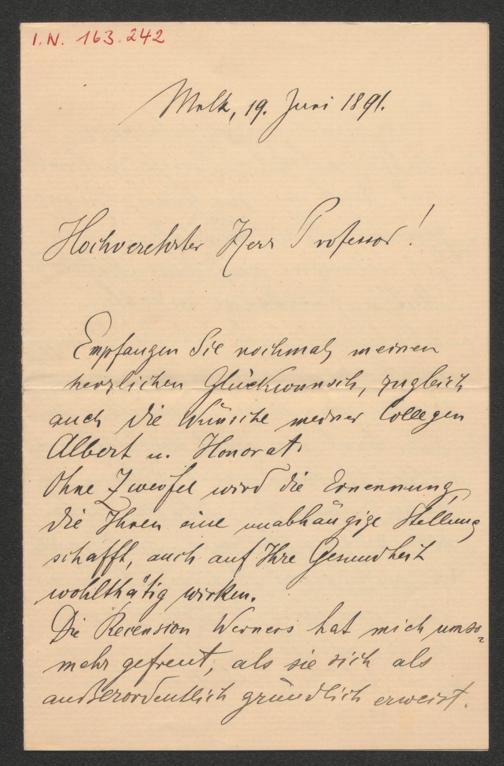 I.N. 163.242
Melk, 19. Juni 1891.
Hochverehrter Herr Professor!
Empfangen Sie nochmals meinen
herzlichen Glückwunsch, zugleich
auch die Wünsche meiner Collegen
Albert u. Honorat.
Ohne Zweifel wird die Ernennung,
die Ihnen eine unabhängige Stellung
schafft, auch auf Ihre Gesundheit
wohlthätig wirken.
Die Recension Werners hat mich umso-
mehr gefreut, als sie sich als
außerordentlich gründlich erweist.